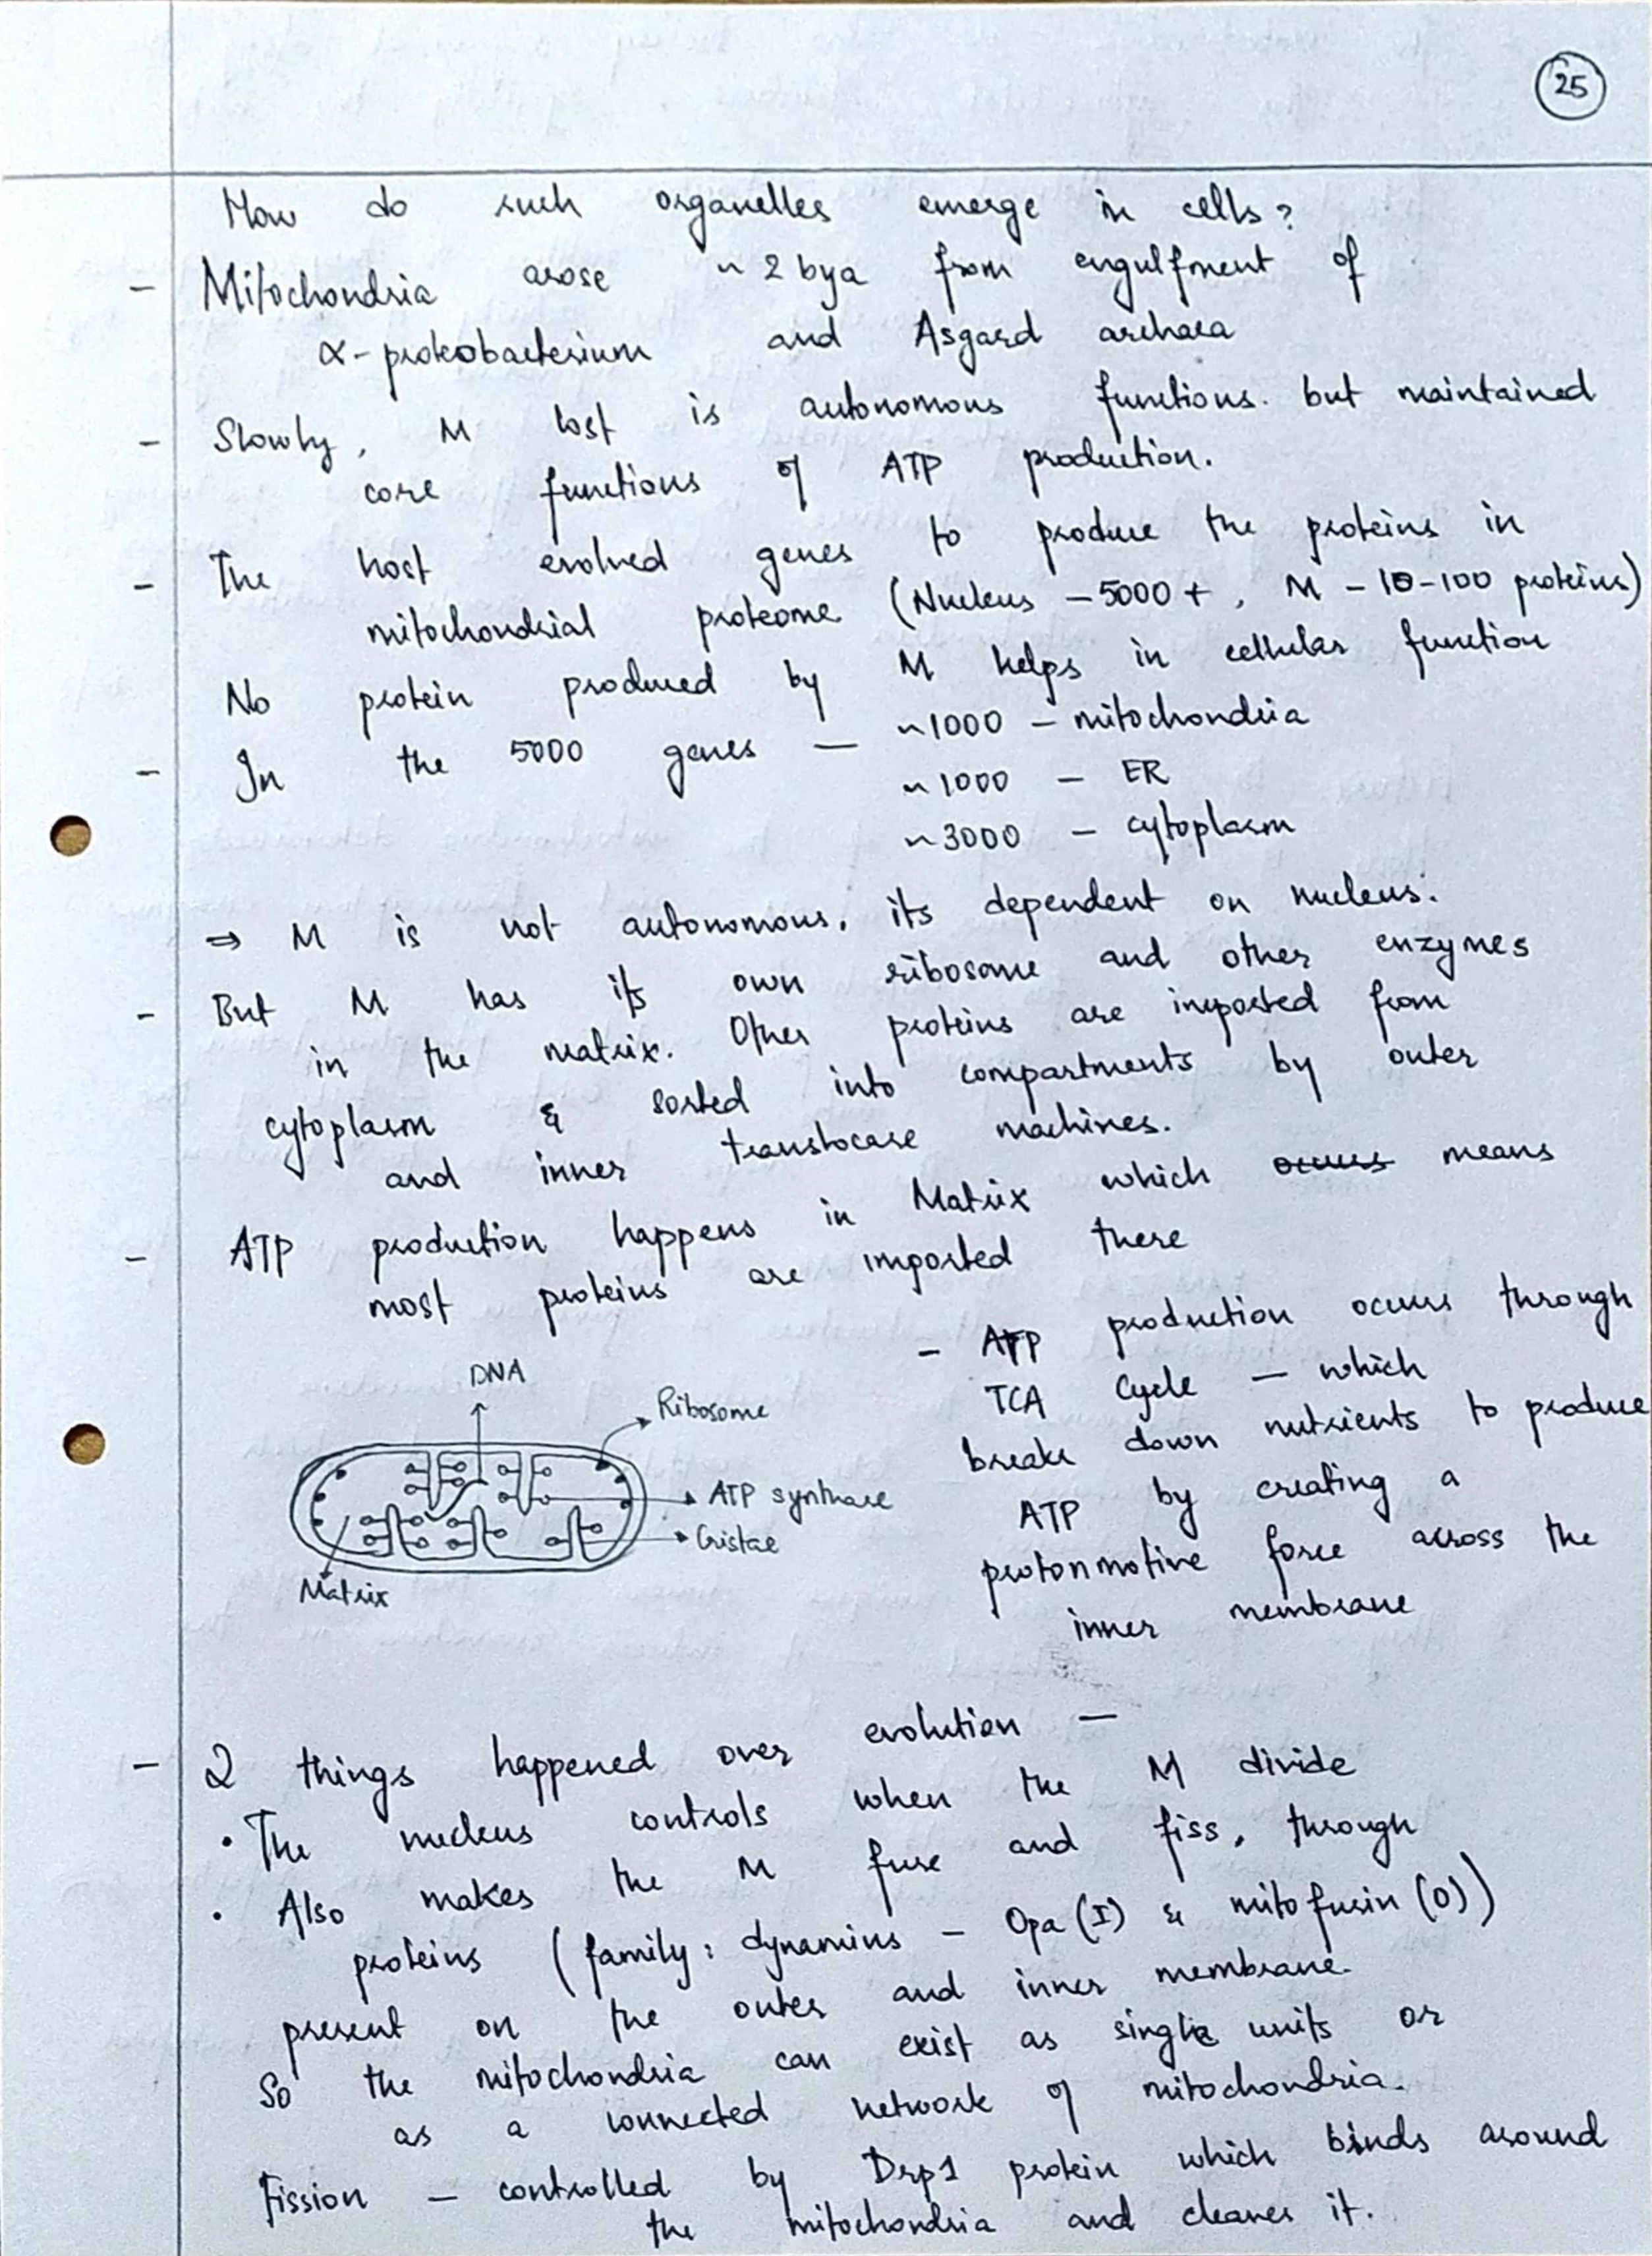 25
How do such organelles emerge in cells?
- Mitochondria arose ~ 2 bya from engulfment of
α-proteobacterium and Asgard archaea
- Slowly, M lost is autonomous functions. but maintained
core functions of ATP production.
- The host evolved genes to produce the proteins in
mitochondrial proteome (Nucleus - 5000 +, M - 10-100 proteins)
No protein produced by M helps in cellular function
- In the 5000 genes — ~1000 - mitochondria
~1000 - ER
~3000 - cytoplasm
⇒ M is not autonomous, its dependent on nucleus.
- But M has its own ribosome and other enzymes
in the matrix. Other proteins are imported from
cytoplasm & sorted into compartments by outer
and inner translocase machines.
- ATP production happens in Matrix which occurs means
most proteins are imported there
- ATP production occurs through
TCA cycle — which
breaks down nutrients to produce
ATP by creating a
protonmotive force across the
inner membrane
DNA
Ribosome
ATP synthase
Cristae
Matrix
- 2 things happened over evolution —
• The nucleus controls when the M divide
• Also makes the M fuse and fiss, through
proteins (family: dynamins - Opa (I) & mitofusin (O))
present on the outer and inner membrane.
So the mitochondria can exist as single units or
as a connected network of mitochondria.
Fission - controlled by Drp1 protein which binds around
the mitochondria and cleaves it.